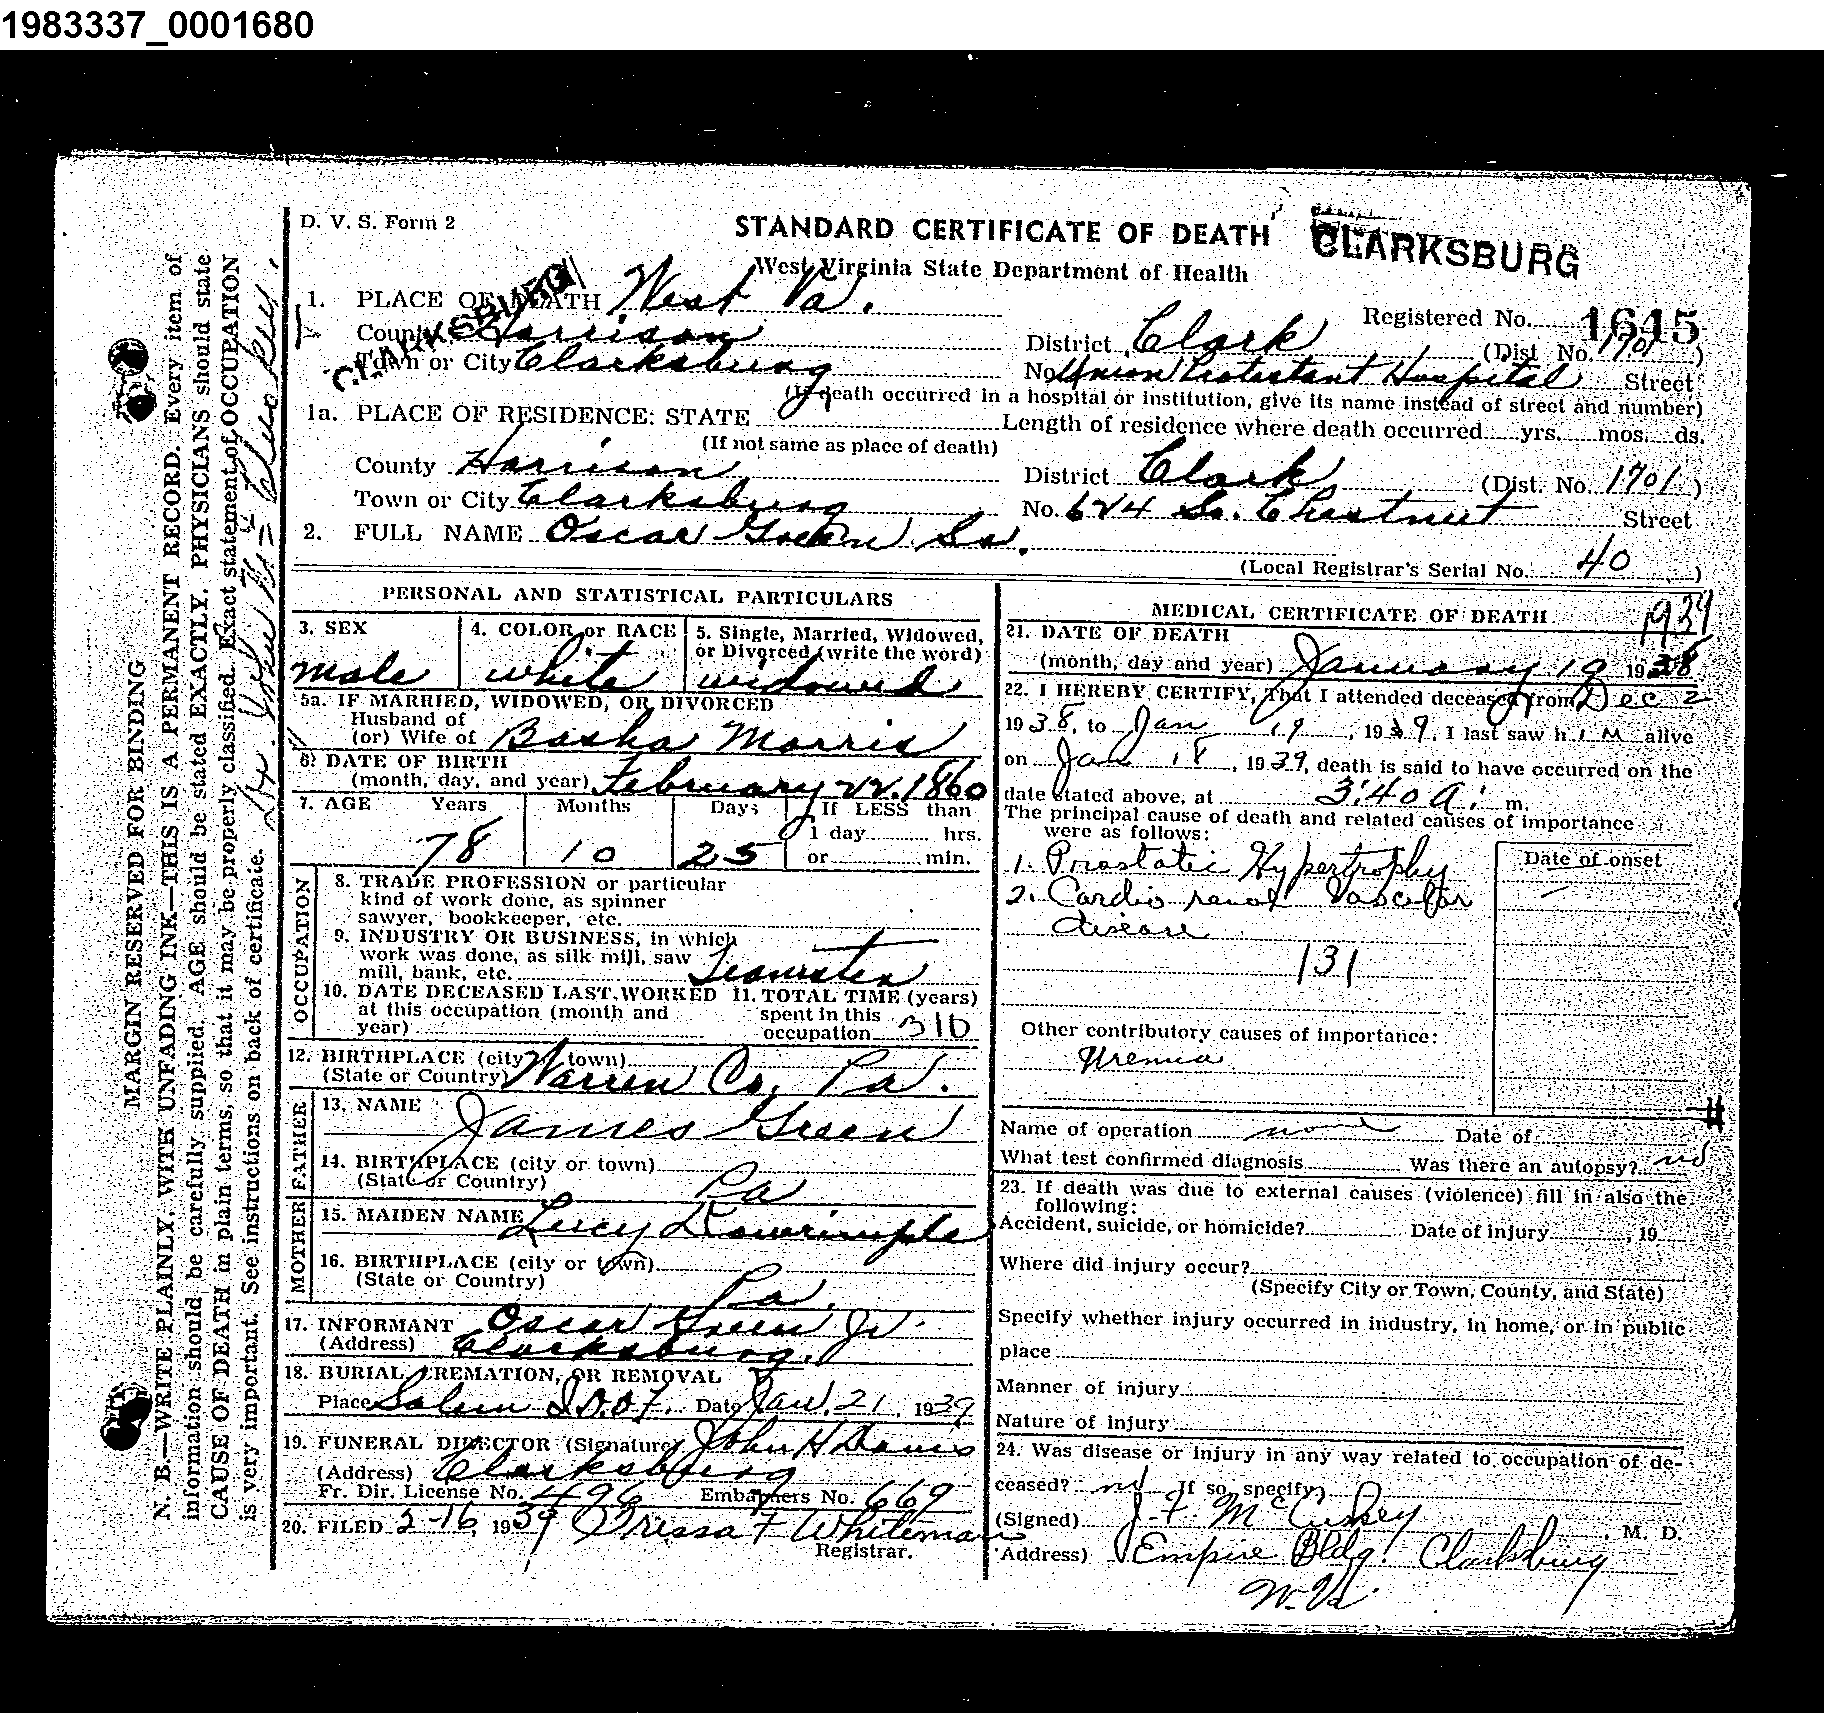 1983337_0001680
D. V. S. Form 2
STANDARD CERTIFICATE OF DEATH
CLARKSBURG
West Virginia State Department of Health
CLARKSBURG
1. PLACE OF DEATH West Va.
Registered No. 1645
County Harrison
District Clark (Dist. No. 1701)
Town or City Clarksburg
No. Union Protestant Hospital Street
(If death occurred in a hospital or institution, give its name instead of street and number)
1a. PLACE OF RESIDENCE: STATE
Length of residence where death occurred yrs. mos. ds.
(If not same as place of death)
County Harrison
District Clark (Dist. No. 1701)
Town or City Clarksburg
No. 624 So. Chestnut Street
2. FULL NAME Oscar Green Sr.
(Local Registrar's Serial No. 40)
PERSONAL AND STATISTICAL PARTICULARS
3. SEX
male
4. COLOR or RACE
white
5. Single, Married, Widowed,
or Divorced (write the word)
widowed
5a. IF MARRIED, WIDOWED, OR DIVORCED
Husband of
(or) Wife of Basha Morris
6. DATE OF BIRTH
(month, day, and year) February 22. 1860
7. AGE Years Months Days If LESS than
1 day hrs.
78 10 25 or min.
OCCUPATION
8. TRADE PROFESSION or particular
kind of work done, as spinner
sawyer, bookkeeper, etc.
9. INDUSTRY OR BUSINESS, in which
work was done, as silk mill, saw
mill, bank, etc. Teamster
10. DATE DECEASED LAST WORKED
at this occupation (month and
year)
11. TOTAL TIME (years)
spent in this
occupation 310
12. BIRTHPLACE (city or town)
(State or Country) Warren Co, Pa.
FATHER
13. NAME James Green
14. BIRTHPLACE (city or town)
(State or Country) Pa
MOTHER
15. MAIDEN NAME Lucy
16. BIRTHPLACE (city or town)
(State or Country) Pa.
17. INFORMANT Oscar Green Jr.
(Address) Clarksburg.
18. BURIAL, CREMATION, OR REMOVAL
Place Salem I.O.O.F. Date Jan. 21, 1939
19. FUNERAL DIRECTOR (Signature) John H Davis
(Address) Clarksburg
Fr. Dir. License No. 496 Embalmers No. 669
20. FILED 2-16, 1939 Tressa F Whiteman
Registrar.
MEDICAL CERTIFICATE OF DEATH
1939
21. DATE OF DEATH
(month, day and year) January 19 1938
22. I HEREBY CERTIFY, That I attended deceased from Dec 2
1938, to Jan 19, 1939. I last saw him alive
on Jan 18, 1939, death is said to have occurred on the
date stated above, at 3:40 a. m.
The principal cause of death and related causes of importance
were as follows:
Date of onset
1. Prostatic Hypertrophy
2. Cardio renal Vascular
disease
131
Other contributory causes of importance:
Uremia
Name of operation none Date of
What test confirmed diagnosis Was there an autopsy? no
23. If death was due to external causes (violence) fill in also the
following:
Accident, suicide, or homicide? Date of injury , 19
Where did injury occur?
(Specify City or Town, County, and State)
Specify whether injury occurred in industry, in home, or in public
place
Manner of injury
Nature of injury
24. Was disease or injury in any way related to occupation of de-
ceased? no If so, specify
(Signed) J. F. McCuskey, M. D.
(Address) Empire Bldg. Clarksburg
W. Va.
MARGIN RESERVED FOR BINDING
N. B.—WRITE PLAINLY, WITH UNFADING INK—THIS IS A PERMANENT RECORD. Every item of
information should be carefully supplied. AGE should be stated EXACTLY. PHYSICIANS should state
CAUSE OF DEATH in plain terms, so that it may be properly classified. Exact statement of OCCUPATION
is very important. See instructions on back of certificate.